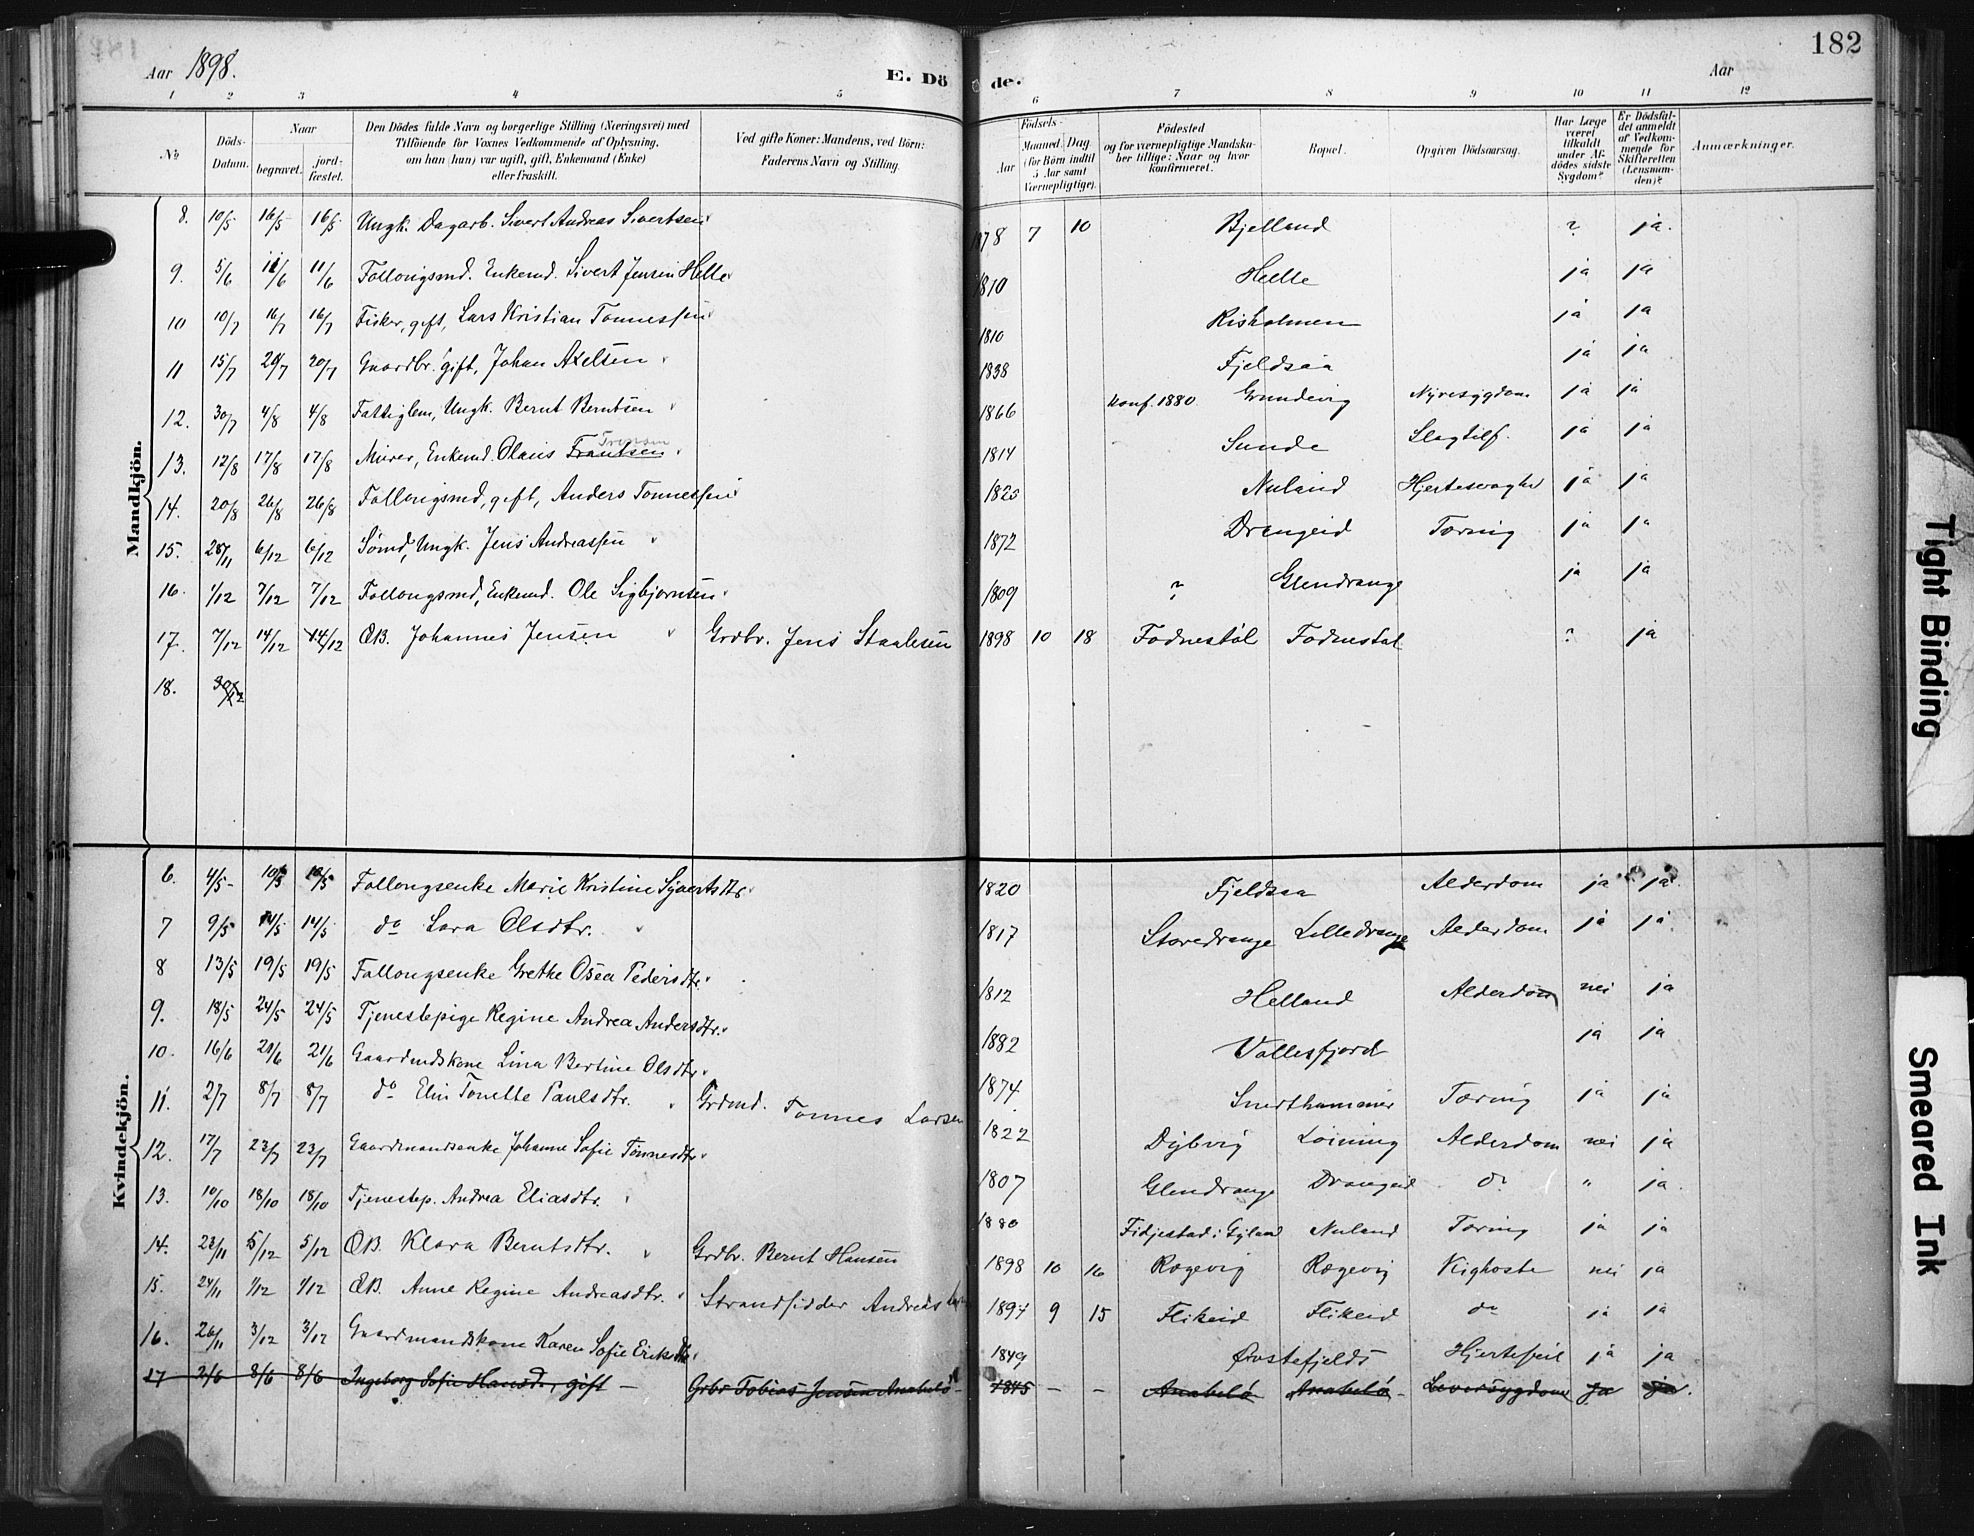 182
Aar 1898.
E. Döde.
Aar
1 2 3 4 5 6 7 8 9 10 11 12
No
Döds-Datum.
Naar
begravet.
jord-fæstet.
Den Dödes fulde Navn og borgerlige Stilling (Næringsvei) med
Tilföiende for Voxnes Vedkommende af Oplysning,
om han (hun) var ugift, gift, Enkemand (Enke)
eller fraskilt.
Ved gifte Koner: Mandens, ved Börn:
Faderens Navn og Stilling.
Födsels-
Aar
Maaned. Dag
(for Börn indtil
5 Aar samt
Værnepligtige).
Födested
og for værnepligtige Mandska-
ber tillige: Naar og hvor
konfirmeret.
Bopæl.
Opgiven Dödsaarsag.
Har Læge
været
tilkaldt
under Af-
dödes sidste
Sygdom?
Er Dödsfal-
det anmeldt
af Vedkom-
mende for
Skifteretten
(Lensman-
den)?
Anmærkninger.
Mandkjön.
8. 10/5 16/5 16/5 Ungk. Dagarb. Sivert Andreas Sivertsen 1878 7 10 Bjelland ? ja.
9. 5/6 11/6 11/6 Follougsmd. Enkemd. Sivert Jensen Helle 1810 Helle ja ja
10 10/7 16/7 16/7 Fisker, gift, Lars Kristian Tønnessen 1810 Risholmen ja ja
11 15/7 20/7 20/7 Gaardbr. gift, Johan Axelsen 1838 Fjeldsaa ja ja
12. 30/7 4/8 4/8 Fattiglem, Ungk. Bernt Berntsen 1866 Konf. 1880. Grundvig Nyresygdom ja ja
13. 12/8 17/8 17/8 Murer, Enkemd. Olaus Frantsen 1814 Sunde Slagtilf. ja ja
14. 20/8 26/8 26/8 Follougsmd, gift, Anders Tonnessen 1825 Nuland Hjertesvaghed ja ja
15. 28/11 6/12 6/12 Sømd, Ungk. Jens Andreassen 1872 Drangeid Tæring ja ja
16. 1/12 7/12 7/12 Follougsmd, Enkemd. Ole Sigbjørnsen 1809 ? Glendrange ja ja
17. 7/12 14/12 14/12 ÆB. Johannes Jensen Grdbr. Jens Staalesen 1898 10 18 Fodnestøl Fodnestøl ? ja
18. 30/12
Kvindekjön.
6. 4/5 10/5 10/5 Follougsenke Marie Kristine Syvertsdtr. 1820 Fjeldsaa Alderdom ja ja
7 9/5 14/5 14/5 do Sara Olsdtr. 1817 Storedrange Lilledrange Alderdom ja ja
8 13/5 19/5 19/5 Follougsenke Grethe Osea Pedersdtr. 1812 Helland Alderdom nei ja
9. 18/5 24/5 24/5 Tjenestepige Regine Andrea Andersdtr. 1882 Vollesfjord ja ja
10. 16/6 21/6 21/6 Gaardmdskone Lina Bertine Olsdtr. 1874 Snerthammer Tæring ja ja
11. 2/7 8/7 8/7 do Elen Tonette Paulsdtr. Grdmd. Tønnes Larsen 1822 Dybvig Løining Alderdom nei ja
12. 17/7 23/7 23/7 Gaardmandsenke Johanne Sofie Tönnesdtr 1807 Glendrange Drangeid do " ja
13. 10/10 18/10 18/10 Tjenestep. Andrea Eliasdtr. 1880 Fidjestad i Gyland Nuland Tæring ja ja
14. 23/11 5/12 5/12 ÆB. Klara Berntsdtr. Grdbr. Bernt Hansen 1898 10 16 Rægevig Rægevig Kighoste nei ja
15. 24/11 1/12 1/12 ÆB. Anne Regine Andreasdtr. Strandsidder Andreas 1897 9 15 Flikeid Flikeid do ja ja
16. 26/11 3/12 3/12 Gaardmandskone Karen Sofie Eriksdtr 1849 Øvstefjelds Hjertefeil ja ja
17 2/6 8/6 8/6 Ingeborg Sofie Hansd., gift – Grbr Tobias Jensen Anabelø 1845 – – Anabelø Anabelø – Leversygdom ja ja.
Tight Binding
Smeared Ink